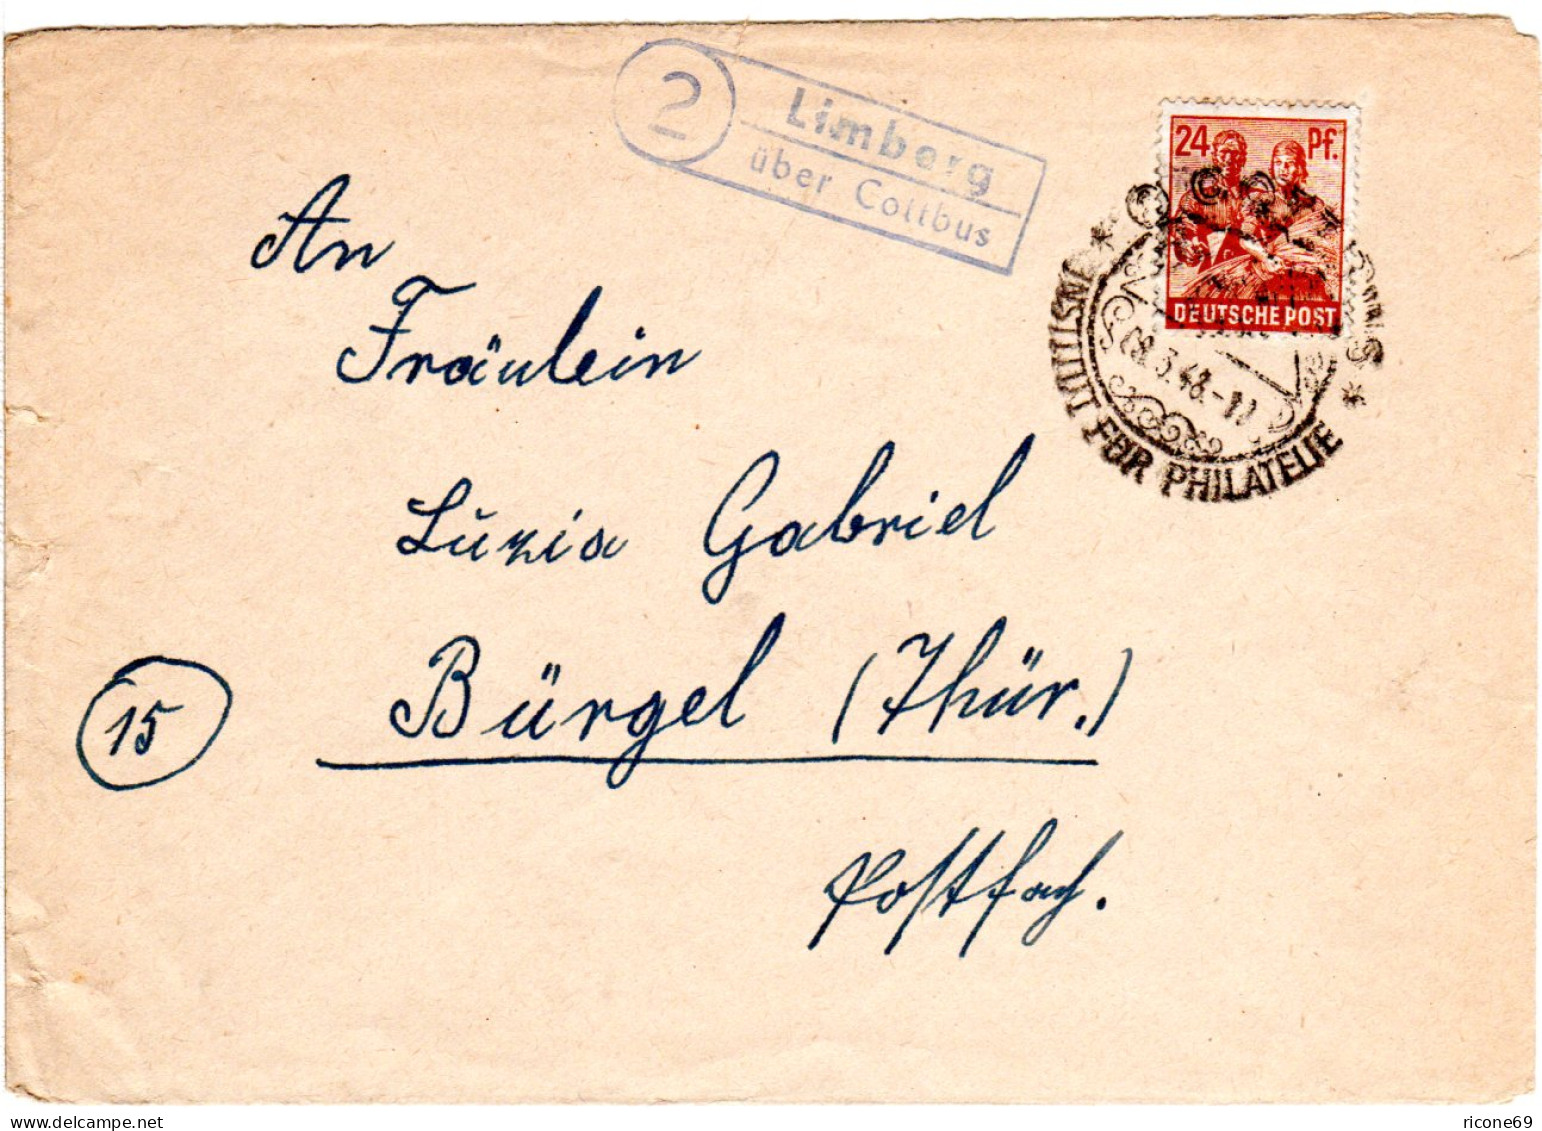 2
Limberg
über Cottbus
24 Pf.
DEUTSCHE POST
INSTITUT FÜR PHILATELIE
08.3.48.-
An
Fräulein
Luzia Gabriel
15
Bürgel (Thür.)
Postfach.
ricone69